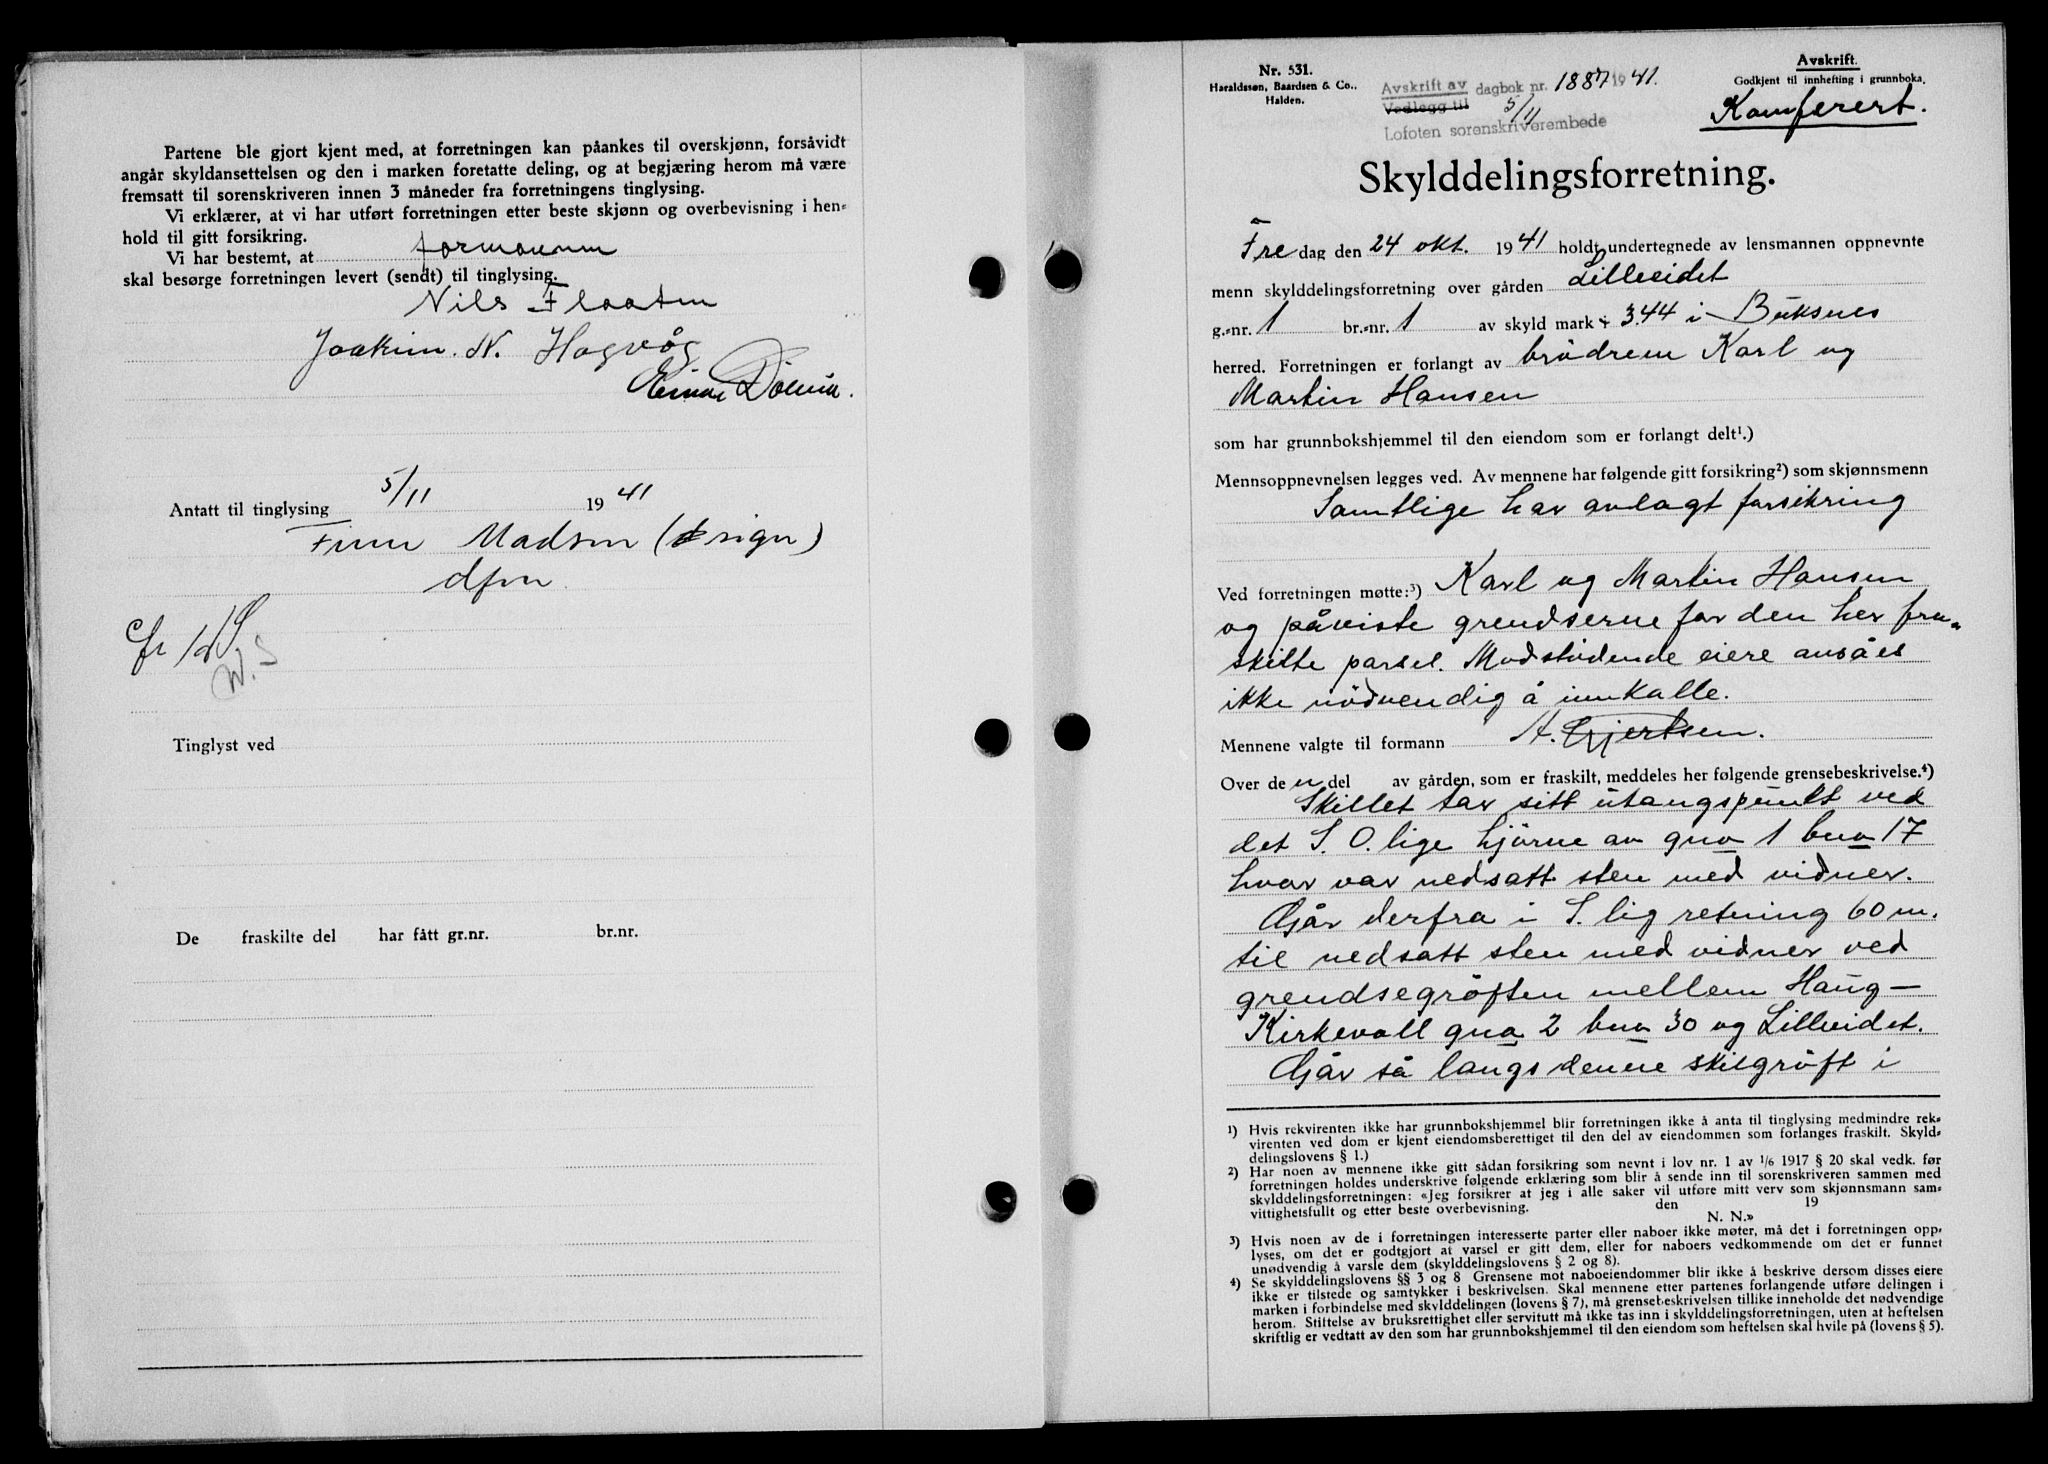 Partene ble gjort kjent med, at forretningen kan påankes til overskjønn, forsåvidt
angår skyldansettelsen og den i marken foretatte deling, og at begjæring herom må være
fremsatt til sorenskriveren innen 3 måneder fra forretningens tinglysing.
Vi erklærer, at vi har utført forretningen etter beste skjønn og overbevisning i hen-
hold til gitt forsikring.
Vi har bestemt, at formannen
skal besørge forretningen levert (sendt) til tinglysing.
Nils Flaaten
Joakim. N. Hagvåg
Einar
Antatt til tinglysing 5/11 1941
Finn Madsen (sign)
dfm
W.S
Tinglyst ved
De fraskilte del har fått gr.nr. br.nr.
Nr. 531.
Haraldssøn, Baardsen & Co.,
Halden.
Avskrift av dagbok nr. 1887 1941.
Vedlegg til 5/11
Lofoten sorenskriverembede
Avskrift.
Godkjent til innhefting i grunnboka.
Konferert.
Skylddelingsforretning.
Fre dag den 24 okt. 1941 holdt undertegnede av lensmannen oppnevnte
menn skylddelingsforretning over gården Lilleeidet
g.-nr. 1 br.-nr. 1 av skyld mark 3.44 i Buksnes
herred. Forretningen er forlangt av brødrene Karl og
Martin Hansen
som har grunnbokshjemmel til den eiendom som er forlangt delt¹.)
Mennsoppnevnelsen legges ved. Av mennene har følgende gitt forsikring²) som skjønnsmenn
Samtlige har avlagt forsikring
Ved forretningen møtte:³) Karl og Martin Hansen
og påviste grendserne for den her fra-
skilte parsel. Modstødende eiere ansåes
ikke nødvendig å innkalle.
Mennene valgte til formann A. Gjertsen.
Over de n del av gården, som er fraskilt, meddeles her følgende grensebeskrivelse.⁴)
Skillet tar sitt utangspunkt ved
det S.O.lige hjørne av gno 1 bno 17
hvor var nedsatt sten med vidner.
Går derfra i S.lig retning 60 m.
til nedsatt sten med vidner ved
grendsegrøften mellem Haug-
Kirkevoll gno 2 bno 30 og Lilleeidet.
Går så langs denne skilgrøft i
¹) Hvis rekvirenten ikke har grunnbokshjemmel blir forretningen ikke å anta til tinglysing medmindre rek-
virenten ved dom er kjent eiendomsberettiget til den del av eiendommen som forlanges fraskilt. Skyld-
delingslovens § 1.)
²) Har noen av mennene ikke gitt sådan forsikring som nevnt i lov nr. 1 av 1/6 1917 § 20 skal vedk. før
forretningen holdes underskrive følgende erklæring som blir å sende inn til sorenskriveren sammen med
skylddelingsforretningen: «Jeg forsikrer at jeg i alle saker vil utføre mitt verv som skjønnsmann sam-
vittighetsfullt og etter beste overbevisning. den 19
N. N.»
³) Hvis noen av de i forretningen interesserte parter eller naboer ikke møter, må det i forretningen opp-
lyses, om det er godtgjort at varsel er gitt dem, eller for naboers vedkommende om det er funnet
unødvendig å varsle dem (skylddelingslovens § 2 og 8).
⁴) Se skylddelingslovens §§ 3 og 8 Grensene mot naboeiendommer blir ikke å beskrive dersom disses eiere
ikke er tilstede og samtykker i beskrivelsen. Skal mennene etter partenes forlangende utføre delingen i
marken i forbindelse med skylddelingen (lovens § 7), må grensebeskrivelsen tillike inneholde det nødvendige
herom. Stiftelse av bruksrettighet eller servitutt må ikke tas inn i skylddelingsforretningen, uten at heftelsen
skriftlig er vedtatt av den som har grunnbokshjemmel til den eiendom som heftelsen skal hvile på (lovens § 5).